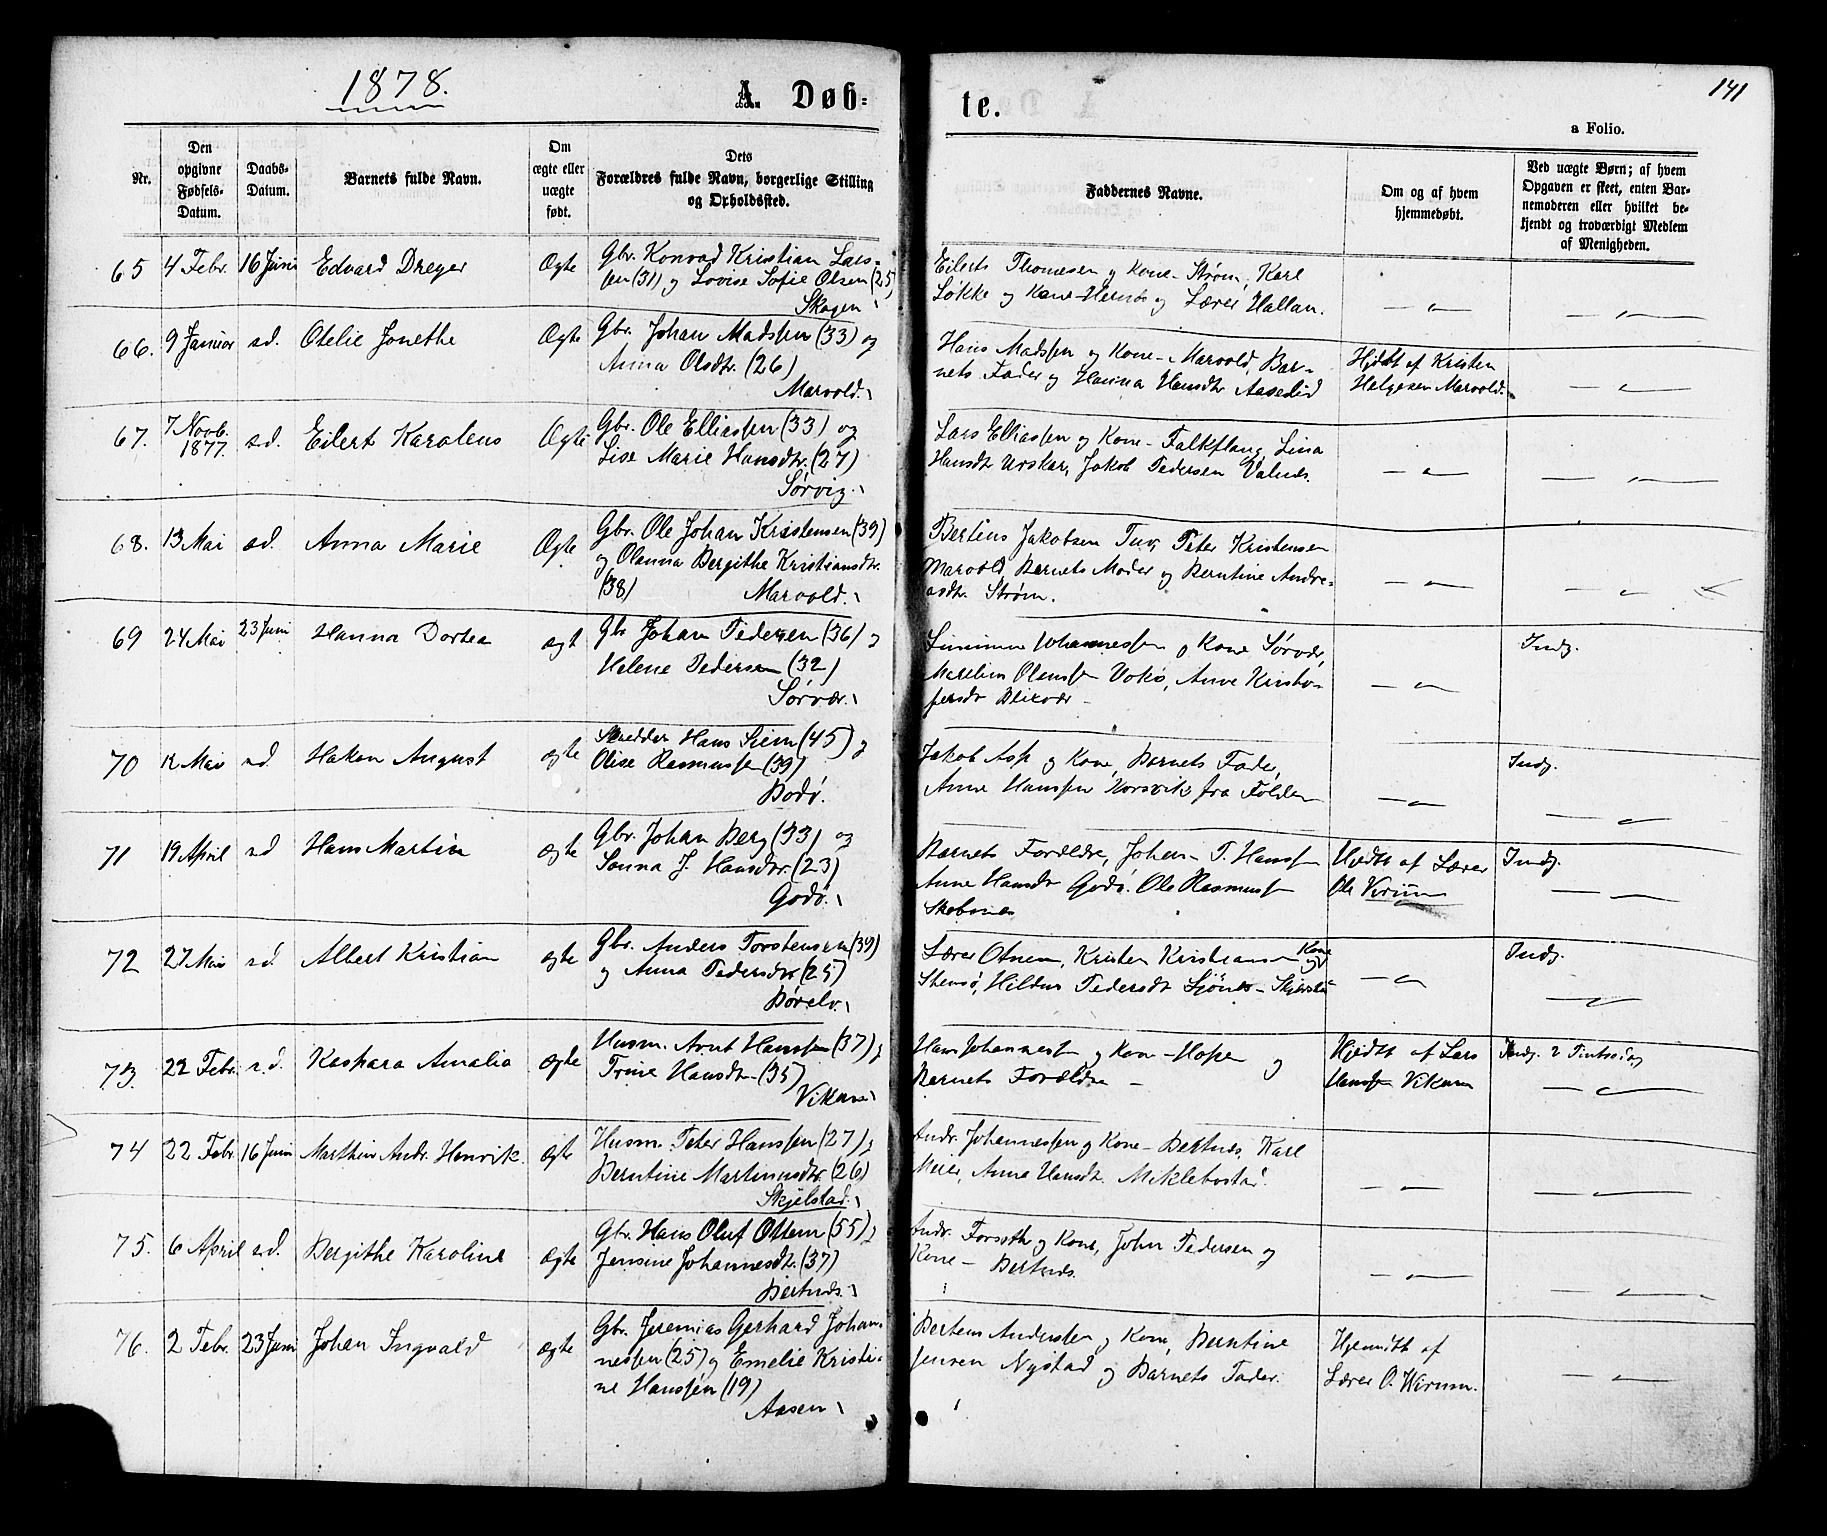 1878.
A. Døb=
te.
141
a Folio.
Nr.
Den opgivne Fødsels-Datum.
Daabs-Datum.
Barnets fulde Navn.
Om ægte eller uægte født.
Dets Forældres fulde Navn, borgerlige Stilling og Opholdssted.
Faddernes Navne.
Om og af hvem hjemmedøbt.
Ved uægte Børn; af hvem Opgaven er skeet, enten Barnemoderen eller hvilket bekjendt og troværdigt Medlem af Menigheden.
65 4 Febr. 16 Juni Edvard Dreyer Ægte Gbr. Konrad Kristian Lars-
sen (31) og Lovise Sofie Olsen (25)
Skagen
Eilert Thomesen og Kone - Strøm, Karl
Løkke og Kone - Hernes og Lærer Hallan.
66. 9 Januar s.d. Otelie Jonethe Ægte Gbr. Johan Madssen (33) og
Anna Olsdtr. (26)
Marvold.
Hans Madssen og Kone - Marvold, Bar-
nets Fader og Hanna Hansdtr Aaselid
Hjdbt af Kristen
Helgesen Marvold.
67. 7 Novb. 1877. s.d. Eilert Karolius Ægte Gbr. Ole Elliassen (33) og
Lise Marie Hansdtr. (27)
Sørvig.
Lars Elliassen og Kone - Falkflaug, Lina
Hansdt Urskar, Jakob Pedersen Valnes.
68. 13 Mai s.d. Anna Marie Ægte Gbr. Ole Johan Kristensen (39)
og Olanna Bergithe Kristiansdtr.
(38) Marvold.
Bertius Jakobsen Tuv, Peter Kristensen
Marvold, Barnets Moder og Berntine Andre-
asdtr. Strøm.
69 24 Mai 23 Juni Hanna Dortea ægt Gbr Johan Pedersen (36) og
Helene Pedersen (32)
Sørvær.
Johannessen og Kone Sørvær,
Olenssen, Anne Kristo-
fersdt Bliksvær -
Indg.
70 12 Mai s.d. Hakon August ægte Skrædder Hans Siem (45) og
Olise Rasmussen (39)
Bodø.
Jakob Asp og Kone, Barnets Fader,
Anne Hanssen Korsvik fra Folden
Indg.
71 19 April s.d Hans Martin ægte Gbr. Johan Berg (33) og
J. Hansdtr. (23)
Godø.
Barnets Forældre, Johan P. Hanssen
Anne Hansdt Godø. Ole Rasmussen
Hjdbt af Lærer
Ole Kirium
Indg.
72 27 Mai s.d. Albert Kristian ægte Gbr. Anders Torstensen (39)
og Anna Pedersdtr. (25)
Børelv.
Lærer Otnem, Kristen Kristiansen og Kone
Stensø, Pedersdt -
Indg.
73. 22 Febr. s.d. Kaspara Amalia ægte Husm. Arnt Hanssen (37) og
Trine Hansdtr (35)
Vikan
Hans Johannessen og Kone - Hopen og
Barnets Forældre -
Hjdbt af Lars
Hanssen Vikan
Indg.
74 22 Febr. 16 Juni Marthin Andr. Henrik. ægte Husm. Peter Hanssen (27) og
Berntine Martinusdtr. (26)
Skjelstad.
Andr. Johannessen og Kone - Bertnes, Karl
Meier, Anne Hansdt. Meklebostad.
75. 6 April s.d. Bergithe Karoline ægte Gbr. Hans Oluf Ottem (55) og
Jensine Johannesdtr. (37)
Bertnes.
Andr. Forseth og Kone, John Pedersen og
Kone - Bertnes.
76. 2 Febr. 23 Juni Johan Ingvald ægte Gbr. Jeremias Gerhard Johan-
nessen (25) og Emelie Kristi-
ne Hanssen (19)
Aasen
Berteus Anderssen og Kone, Berntine
Jensen Nystad og Barnets Fader.
Hjemdbt af
Lærer O. Kirium.